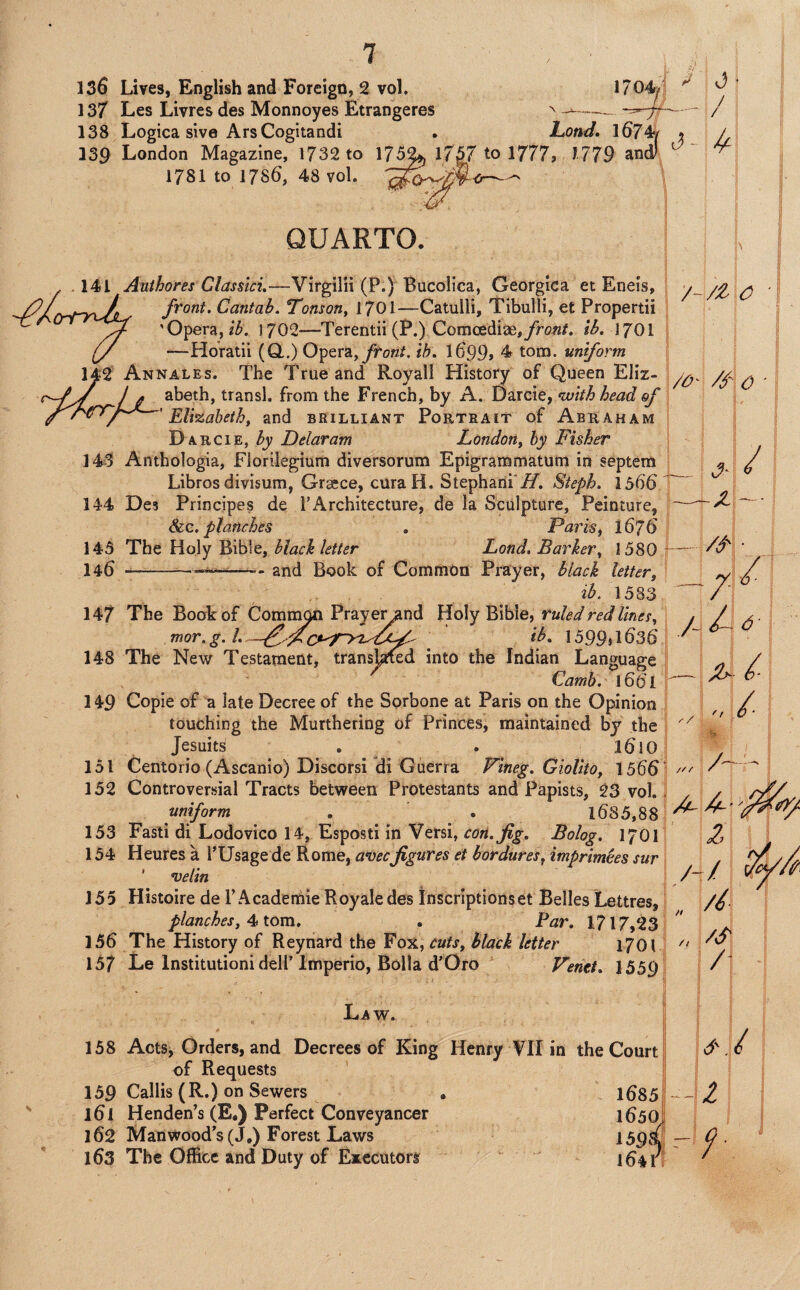 7
136 Lives, English and Foreign, 2 vol. 1704
137 Les Livres des Monnoyes Etrangeres
138 Logica sive Ars Cogitandi . Lond. 1674
139 London Magazine, 1732 to 1752, 1757 to 1777, 1779 and
1781 to 1786, 48 vol.
QUARTO.
141 Authores Classici.—Virgilii (P.) Bucolica, Georgica et Eneis,
front. Cantab. Tonson, 1701—Catulli, Tibulli, et Propertii
Opera, ib. 1702—Terentii (P.) Comœdiæ, front. ib. 1701
—Horatii (Q.) Opera, front. ib. 1699, 4 tom. uniform
142 Annales. The True and Royall History of Queen Eliz-
abeth, transl. from the French, by A. Darcie, with head of
Elizabeth, and brilliant Portrait of Abraham
Darcie, by Delaram London, by Fisher
143 Anthologia, Florilegium diversorum Epigrammatum in septem
Libros divisum, Græce, cura H. Stephani H. Steph. 1566
144 Des Principes de l'Architecture, de la Sculpture, Peinture,
&c. planches . Paris, 1676
145 The Holy Bible, black letter Lond. Barker, 1580
146 ——— and Book of Common Prayer, black letter,
ib. 1583
147 The Book of Common Prayer and Holy Bible, ruled red lines,
mor. g. l. ib. 1599, 1636
148 The New Testament, translated into the Indian Language
Camb. 1661
149 Copie of a late Decree of the Sorbone at Paris on the Opinion
touching the Murthering of Princes, maintained by the
Jesuits . . 1610
151 Centorio (Ascanio) Discorsi di Guerra Vineg. Giolito, 1566
152 Controversial Tracts between Protestants and Papists, 23 vol.
uniform . . 1685,88
153 Fasti di Lodovico 14, Esposti in Versi, con. fig. Bolog. 1701
154 Heures à l'Usage de Rome, avec figures et bordures, imprimées sur
velin
155 Histoire de l'Academie Royale des Inscriptions et Belles Lettres,
planches, 4 tom. . Par. 1717,23
156 The History of Reynard the Fox, cuts, black letter 1701
157 Le Institutioni dell' Imperio, Bolla d'Oro Venet. 1559
Law.
158 Acts, Orders, and Decrees of King Henry VII in the Court
of Requests
159 Callis (R.) on Sewers . 1685
161 Henden's (E.) Perfect Conveyancer 1650
162 Manwood's (J.) Forest Laws 1598
163 The Office and Duty of Executors 1641